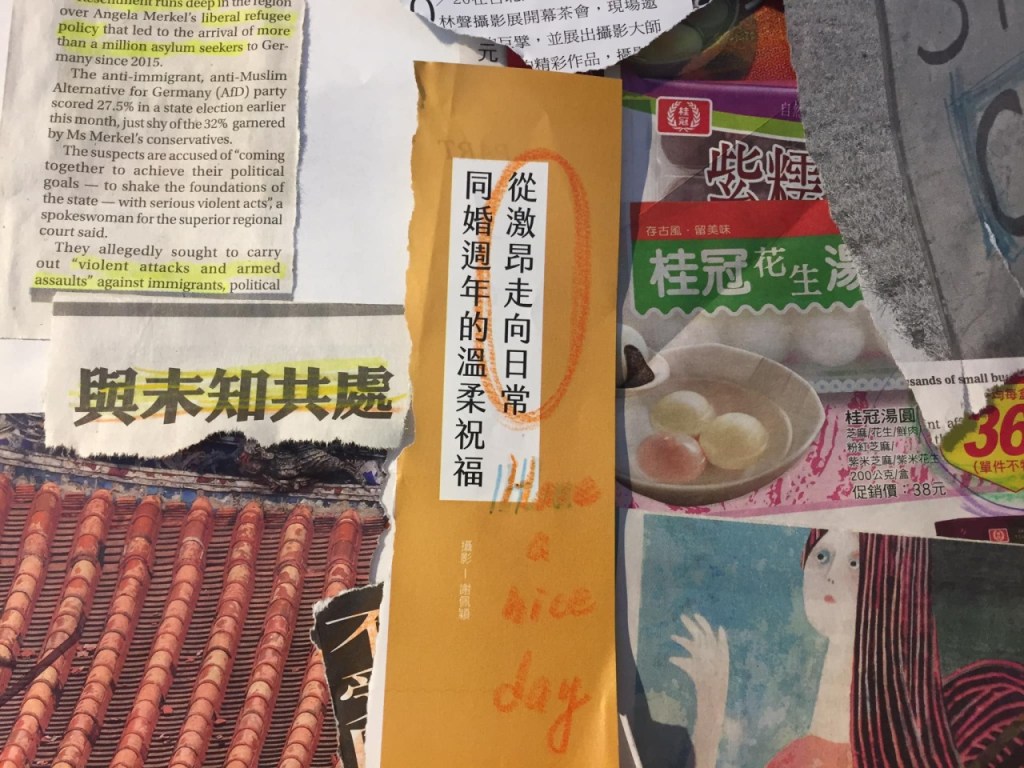 Resentment runs deep in the region
over Angela Merkel's liberal refugee
policy that led to the arrival of more
than a million asylum seekers to Ger-
many since 2015.
The anti-immigrant, anti-Muslim
Alternative for Germany (AfD) party
scored 27.5% in a state election earlier
this month, just shy of the 32% garnered
by Ms Merkel's conservatives.
The suspects are accused of "coming
together to achieve their political
goals — to shake the foundations of
the state — with serious violent acts", a
spokeswoman for the superior regional
court said.
They allegedly sought to carry
out "violent attacks and armed
assaults" against immigrants, political
與未知共處
林聲攝影展開幕茶會，現場邀
巨擘，並展出攝影大師
的精彩作品，攝影
元
從激昂走向日常
同婚週年的溫柔祝福
攝影—謝佩穎
Have
a
nice
day
桂冠
紫糯
存古風．留美味
桂冠花生湯
sands of small bu
桂冠湯圓
芝麻/花生/鮮肉/
粉紅芝麻/
紫米芝麻/紫米花生
200公克/盒
促銷價：38元
36
(單件不